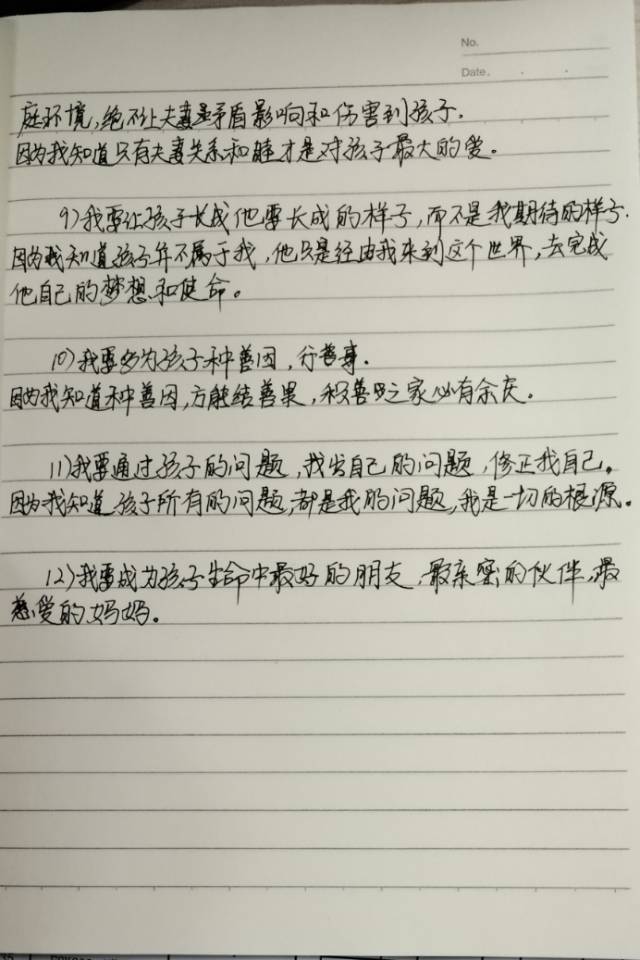 No.
Date.
庭环境,绝不让夫妻矛盾影响和伤害到孩子.
因为我知道只有夫妻关系和睦才是对孩子最大的爱。
9)我要让孩子长成他要长成的样子,而不是我期待的样子.
因为我知道孩子并不属于我,他只是经由我来到这个世界,去完成
他自己的梦想和使命。
10)我要多为孩子种善因,行善事.
因为我知道种善因,方能结善果,积善之家必有余庆。
11)我要通过孩子的问题,找出自己的问题,修正我自己。
因为我知道孩子所有的问题,都是我的问题,我是一切的根源。
12)我要成为孩子生命中最好的朋友,最亲密的伙伴,最
慈爱的妈妈。